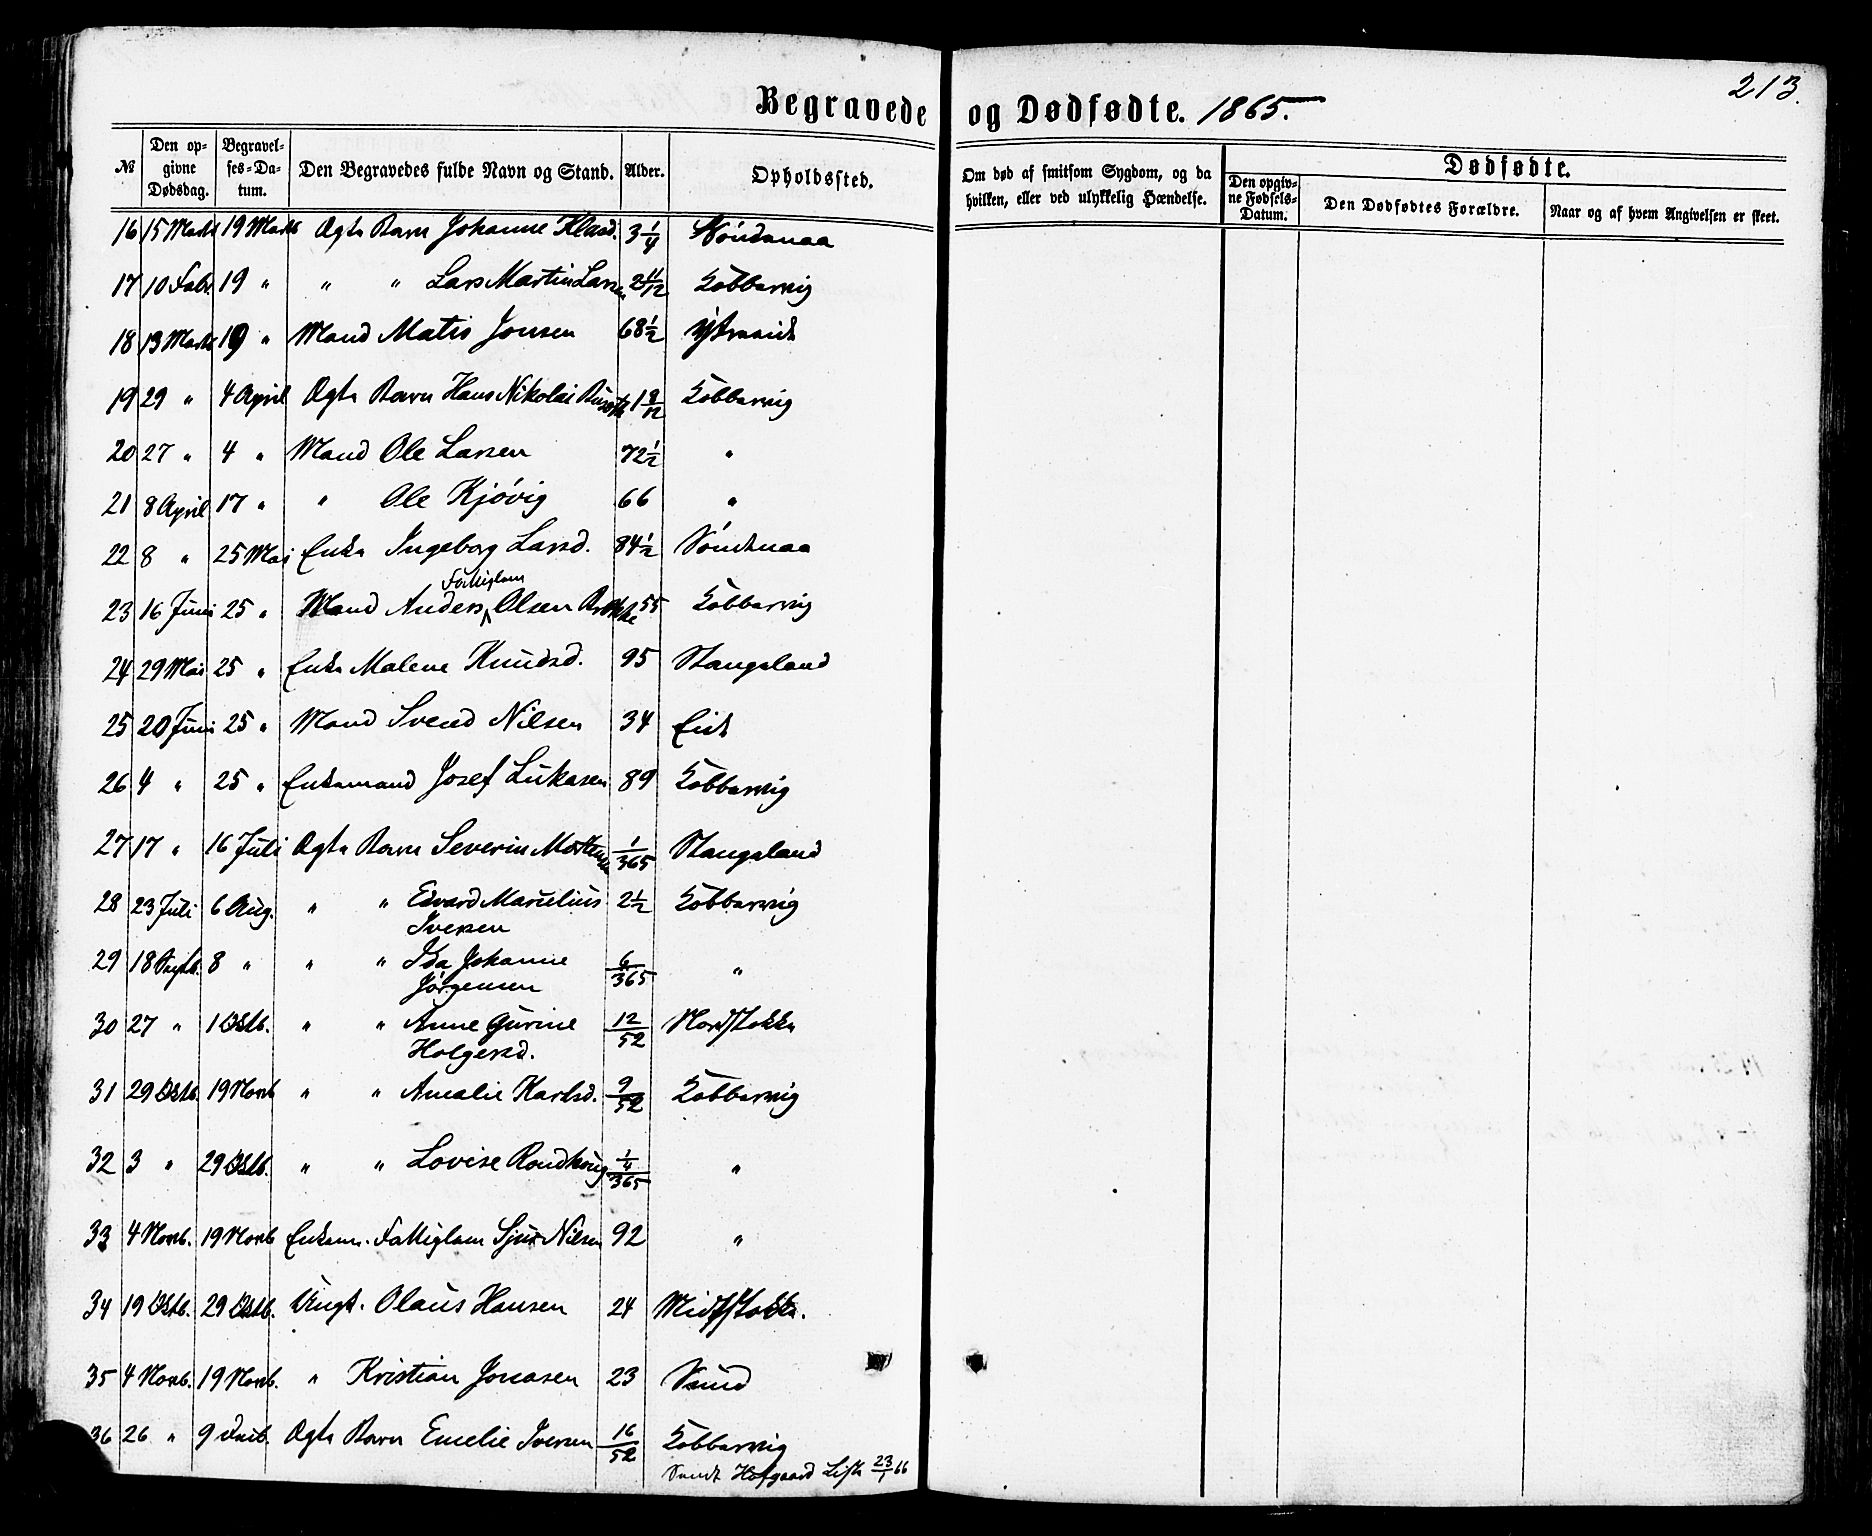 213.
Begravede og Dødfødte. 1865.
№ Den opgivne Dødsdag. Begravelses-Datum. Den Begravedes fulde Navn og Stand. Alder. Opholdssted. Om død af smitsom Sygdom, og da hvilken, eller ved ulykkelig Hændelse. Dødfødte. Den opgivne Fødsels-Datum. Den Dødfødtes Forældre. Naar og af hvem Angivelsen er skeet.
16 15 Marts 19 Marts Ægte Barn Johanne 3 1/4 Söndenaa
17 10 Febr. 19 " " " Lars Martin Larsen 2 11/12 Kobbervig
18 13 Marts 19 " Mand Matis Jonsen 68 1/2 Ytreeide
19 29 " 4 April Ægte Barn Hans Nikolai 1 8/12 Kobbervig
20 27 " 4 " Mand Ole Larsen 72 1/2 "
21 8 April 17 " " Ole Kjövig 66 "
22 8 " 25 Mai Enke Ingeborg Larsd. 84 1/2 Söndenaa
Fattiglem
23 16 Juni 25 " Mand Anders Olsen 55 Kobbervig
24 29 Mai 25 " Enke Malene Knudsd. 95 Stangeland
25 20 Juni 25 " Mand Svend Nilsen 34 Eide
26 4 " 25 " Enkemand Josef Lukasen 89 Kobbervig
27 17 " 16 Juli Ægte Barn Severin Mortensen 1/365 Stangeland
28 23 Juli 6 Aug. " " Edvard Marselius 2 1/2 Kobbervig
Iversen
29 18 Septb. 8 " " " Ida Johanne 6/365 "
Jörgensen
30 27 " 1 Oktb. " " Anne Gurine 12/52 Nordstokke
Holgersd.
31 29 Oktb. 19 Novb " " Amalie Karlsd. 9/52 Kobbervig
32 3 " 29 Oktb. " " Lovise 1/4/365 "
33 4 Novb. 19 Novb Enkem. Fattiglem Sjur Nilsen 92 "
34 19 Oktb. 29 Oktb. Ungk. Olaus Hansen 24 Midtstokke.
35 4 Novb. 19 Novb. " Kristian Jonasen 23 Sund
36 26 " 9 Decb. Ægte Barn Emelie Iversen 16/52 Kobbervig
Sendt Hofgaard Liste 23/1 66